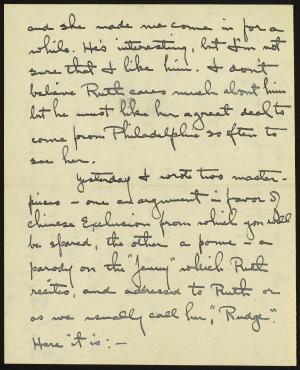 and she made me come in for a
while. He's interesting, but I'm not
sure that I like him. I don't
believe Ruth cares much about him
but he must like her a great deal to
come from Philadelphia so often to
see her.
Yesterday I wrote two master-
pieces - one an argument in favor of
Chinese Exclusion from which you will
be spared, the other a pome - a
parody on the "Jenny" which Ruth
recites, and addressed to Ruth or
as we usually call her, "Rudge".
Here it is: -